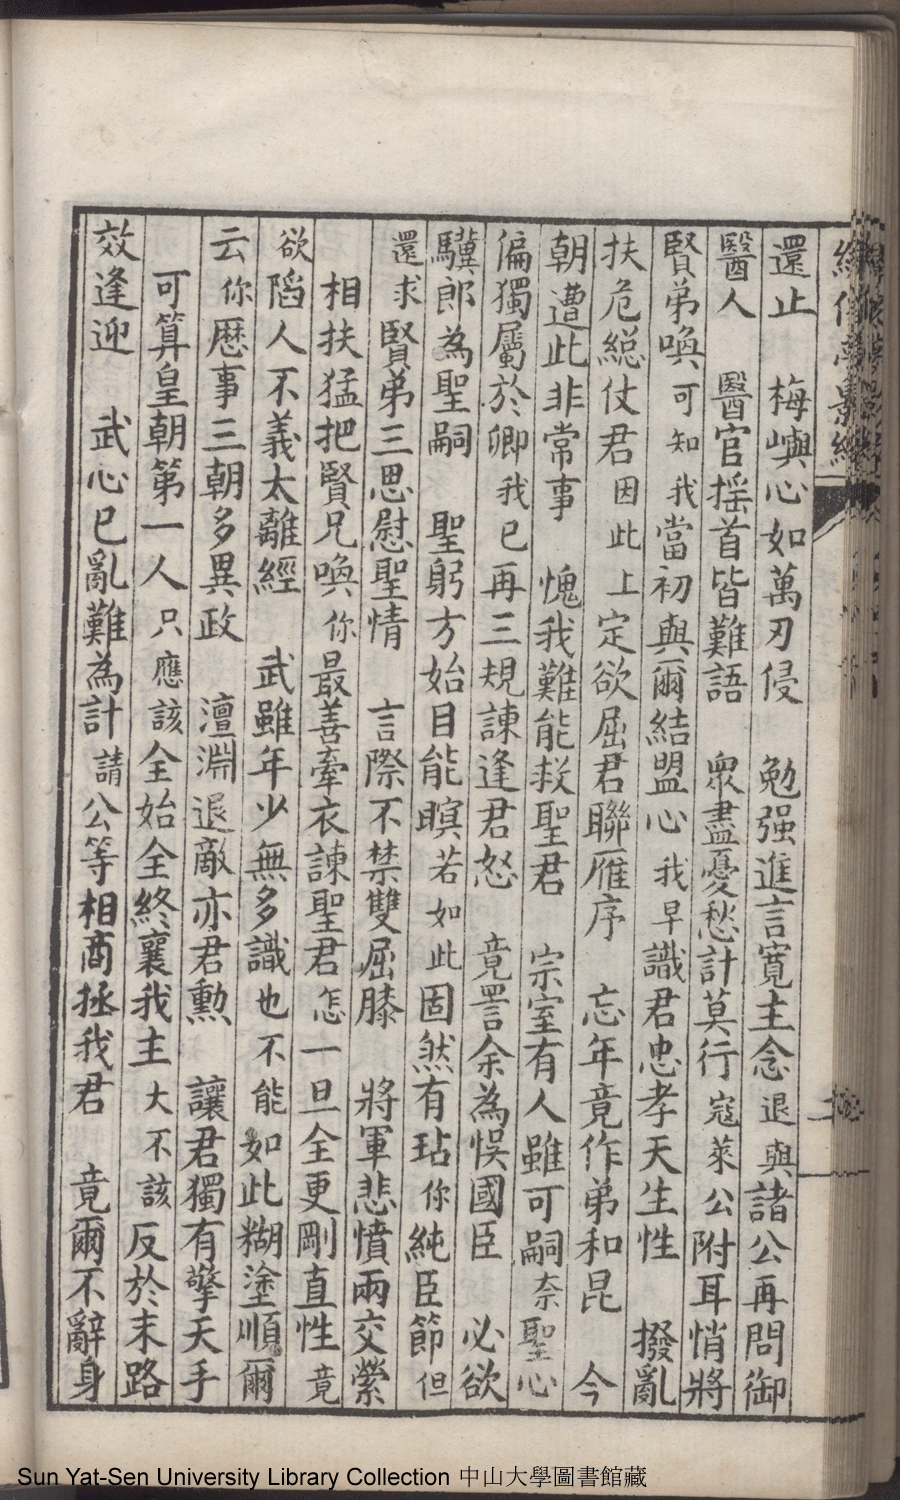 還止　梅嶼心如萬刃侵　勉强進言寬主念退與諸公再問御
醫人　醫官揺首皆難語　眾盡憂愁計莫行寇萊公附耳悄將
賢弟喚可知我當初與爾結盟心我早識君忠孝天生性　撥亂
扶危緫仗君因此上定欲屈君聯雁序　忘年竟作弟和昆　今
朝遭此非常事　愧我難能救聖君　宗室有人雖可嗣奈聖心
偏獨屬於卿我已再三規諫逢君怒　竟詈余為悞國臣　必欲
驥郎為聖嗣　聖躬方始目能瞑若如此固然有玷你純臣節但
還求賢弟三思慰聖情　言際不禁雙屈膝　將軍悲憤兩交縈
相扶猛把賢兄喚你最善牽衣諫聖君怎一旦全更剛直性竟
欲陷人不義太離經　武雖年少無多識也不能如此糊塗順爾
云你歷事三朝多異政　澶淵退敵亦君勲　讓君獨有擎天手
可算皇朝第一人只應該全始全終襄我主大不該反於末路
效逢迎　武心已亂難為計請公等相商拯我君　竟爾不辭身
Sun Yat-Sen University Library Collection 中山大學圖書館藏